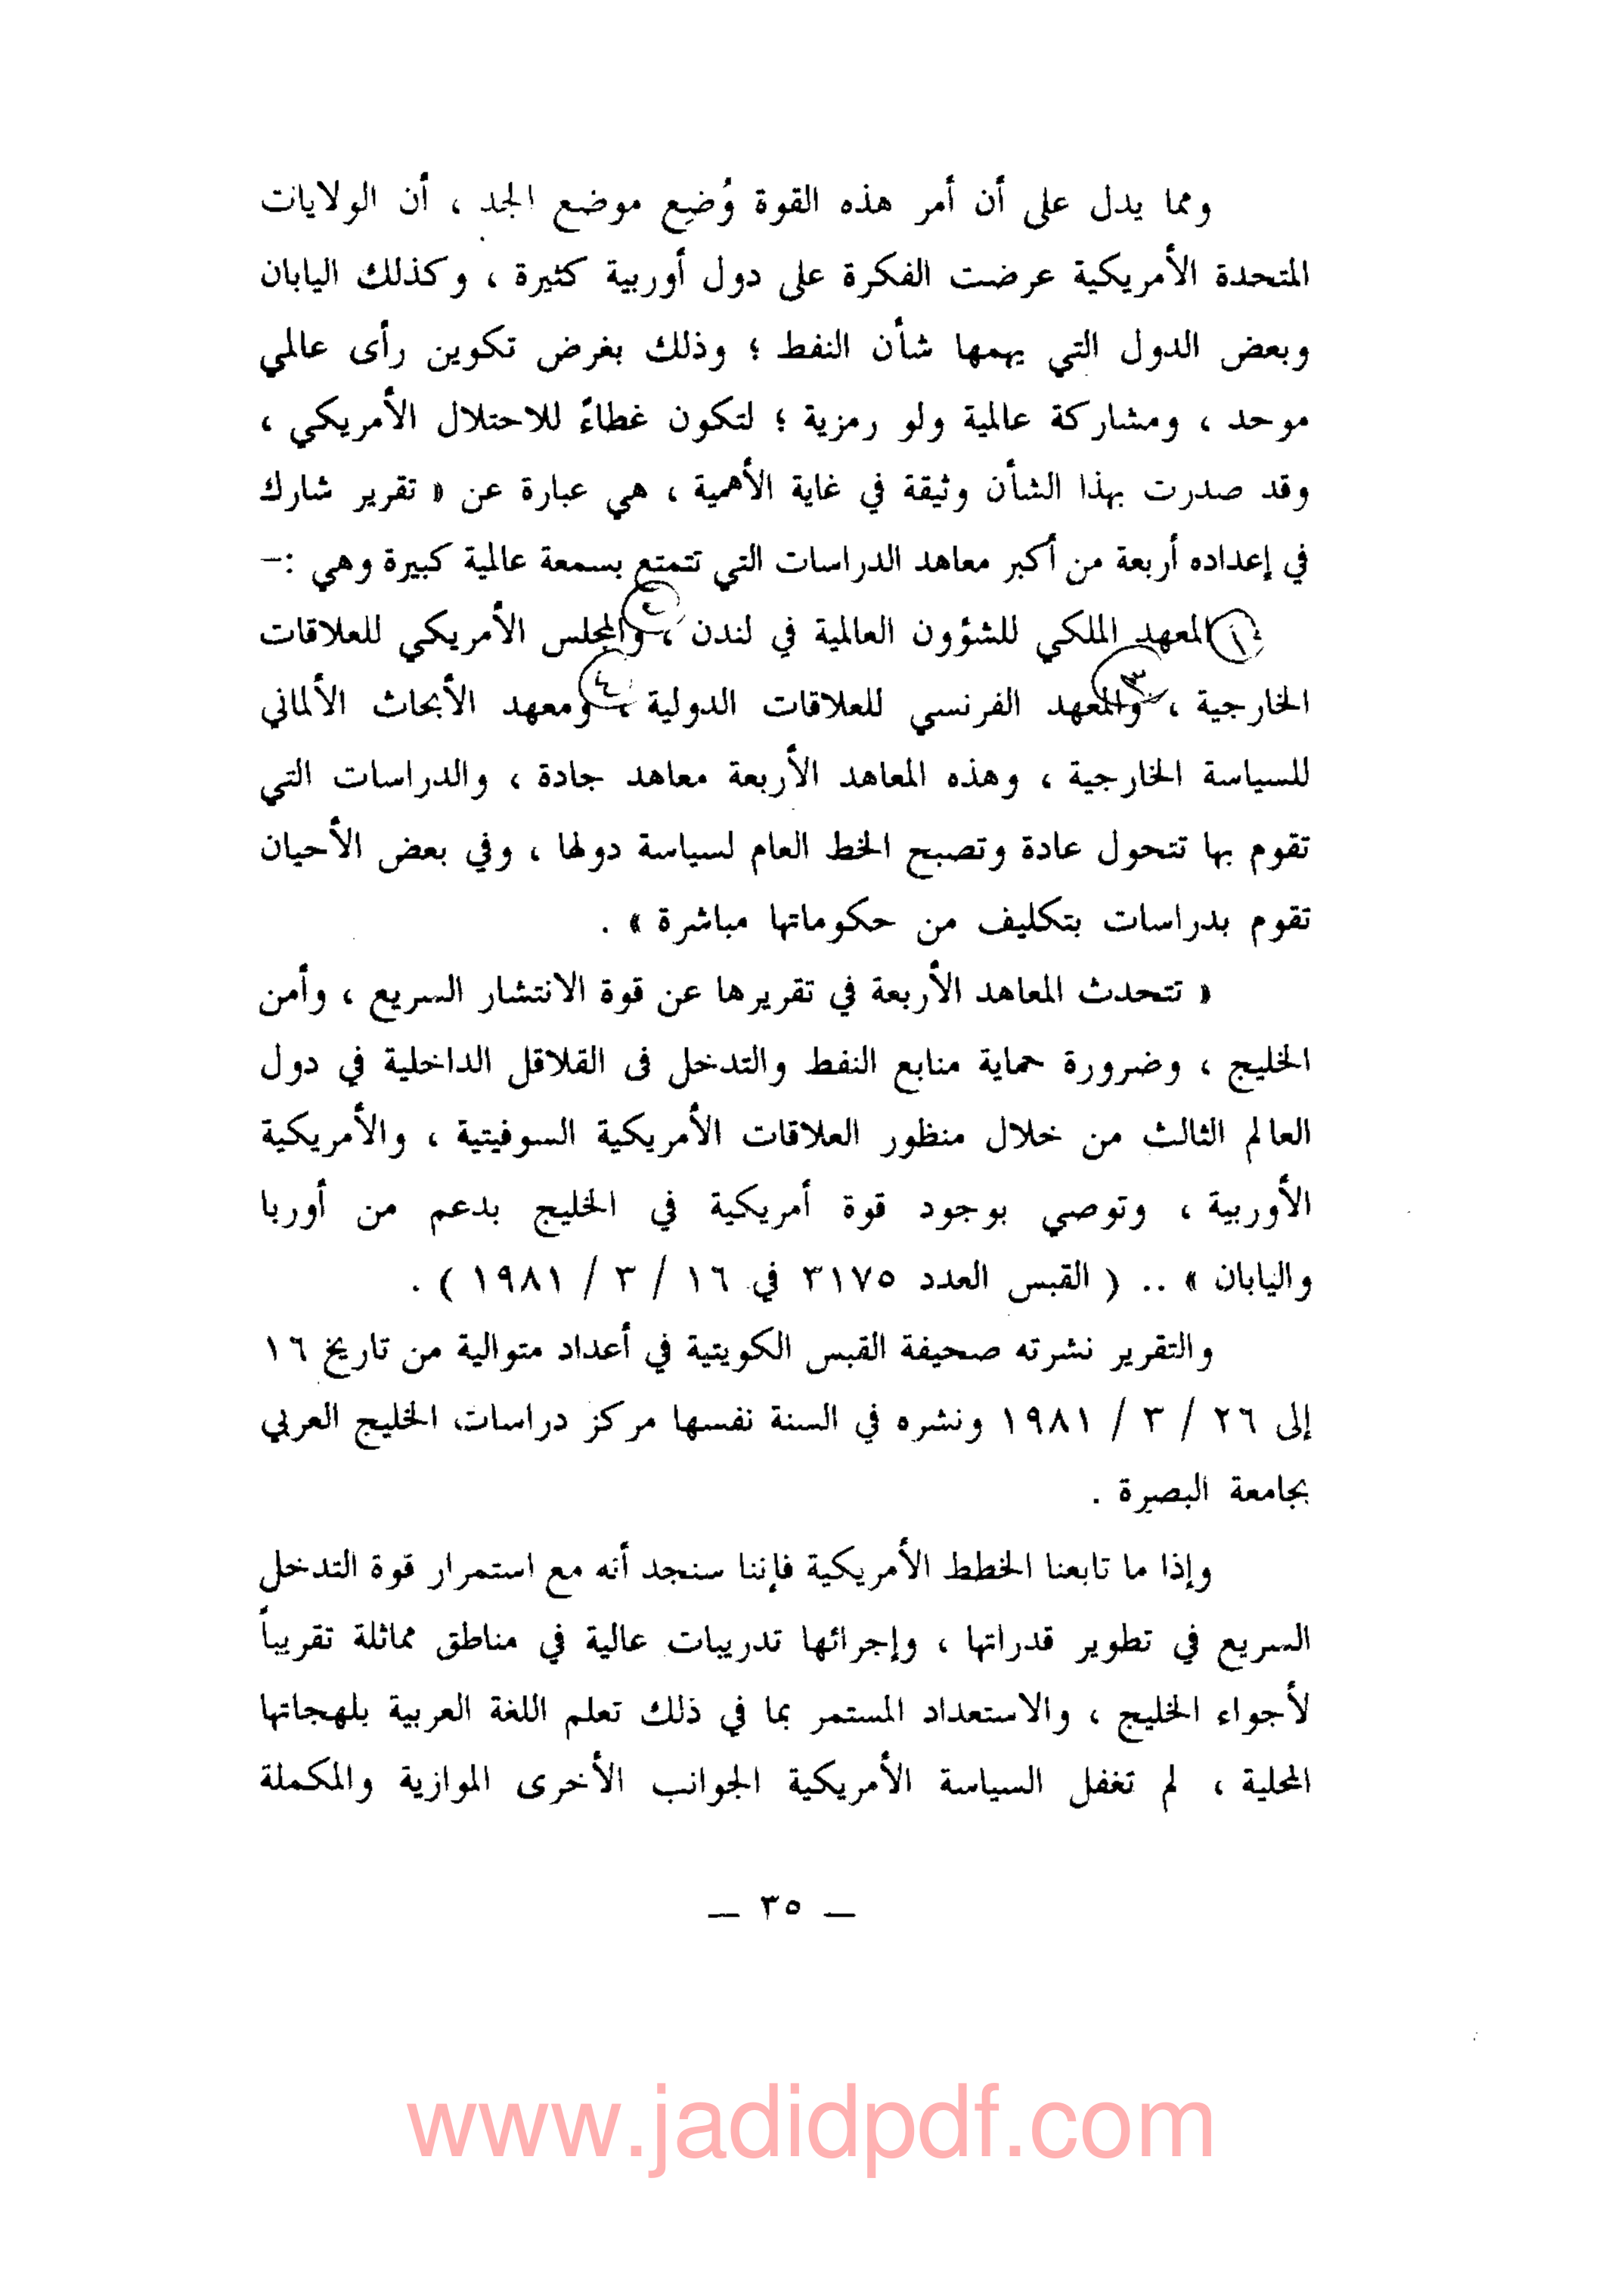 ومما يدل على أن أمر هذه القوة وُضِع موضع الجد ، أن الولايات
المتحدة الأمريكية عرضت الفكرة على دول أوربية كثيرة ، وكذلك اليابان
وبعض الدول التي يهمها شأن النفط ؛ وذلك بغرض تكوين رأى عالمي
موحد ، ومشاركة عالمية ولو رمزية ؛ لتكون غطاءً للاحتلال الأمريكي ،
وقد صدرت بهذا الشأن وثيقة في غاية الأهمية ، هي عبارة عن « تقرير شارك
في إعداده أربعة من أكبر معاهد الدراسات التي تتمتع بسمعة عالمية كبيرة وهي :–
١ المعهد الملكي للشؤون العالمية في لندن ، ٢ والمجلس الأمريكي للعلاقات
الخارجية ، ٣ والمعهد الفرنسي للعلاقات الدولية ، ٤ ومعهد الأبحاث الألماني
للسياسة الخارجية ، وهذه المعاهد الأربعة معاهد جادة ، والدراسات التي
تقوم بها تتحول عادة وتصبح الخط العام لسياسة دولها ، وفي بعض الأحيان
تقوم بدراسات بتكليف من حكوماتها مباشرة » .
« تتحدث المعاهد الأربعة في تقريرها عن قوة الانتشار السريع ، وأمن
الخليج ، وضرورة حماية منابع النفط والتدخل فى القلاقل الداخلية في دول
العالم الثالث من خلال منظور العلاقات الأمريكية السوفيتية ، والأمريكية
الأوربية ، وتوصي بوجود قوة أمريكية في الخليج بدعم من أوربا
واليابان » .. ( القبس العدد ٣١٧٥ في ١٦ / ٣ / ١٩٨١ ) .
والتقرير نشرته صحيفة القبس الكويتية في أعداد متوالية من تاريخ ١٦
إلى ٢٦ / ٣ / ١٩٨١ ونشره في السنة نفسها مركز دراسات الخليج العربي
بجامعة البصرة .
وإذا ما تابعنا الخطط الأمريكية فإننا سنجد أنه مع استمرار قوة التدخل
السريع في تطوير قدراتها ، وإجرائها تدريبات عالية في مناطق مماثلة تقريباً
لأجواء الخليج ، والاستعداد المستمر بما في ذلك تعلم اللغة العربية بلهجاتها
المحلية ، لم تغفل السياسة الأمريكية الجوانب الأخرى الموازية والمكملة
— ٣٥ —
www.jadidpdf.com